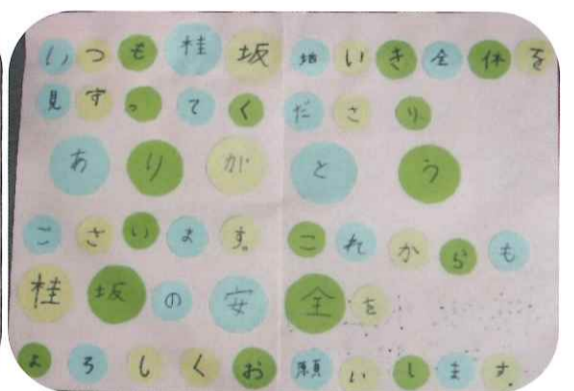 いつも桂坂地いき全体を
見守ってくださり
ありがとう
ございます。これからも
桂坂の安全を
よろしくお願いします。